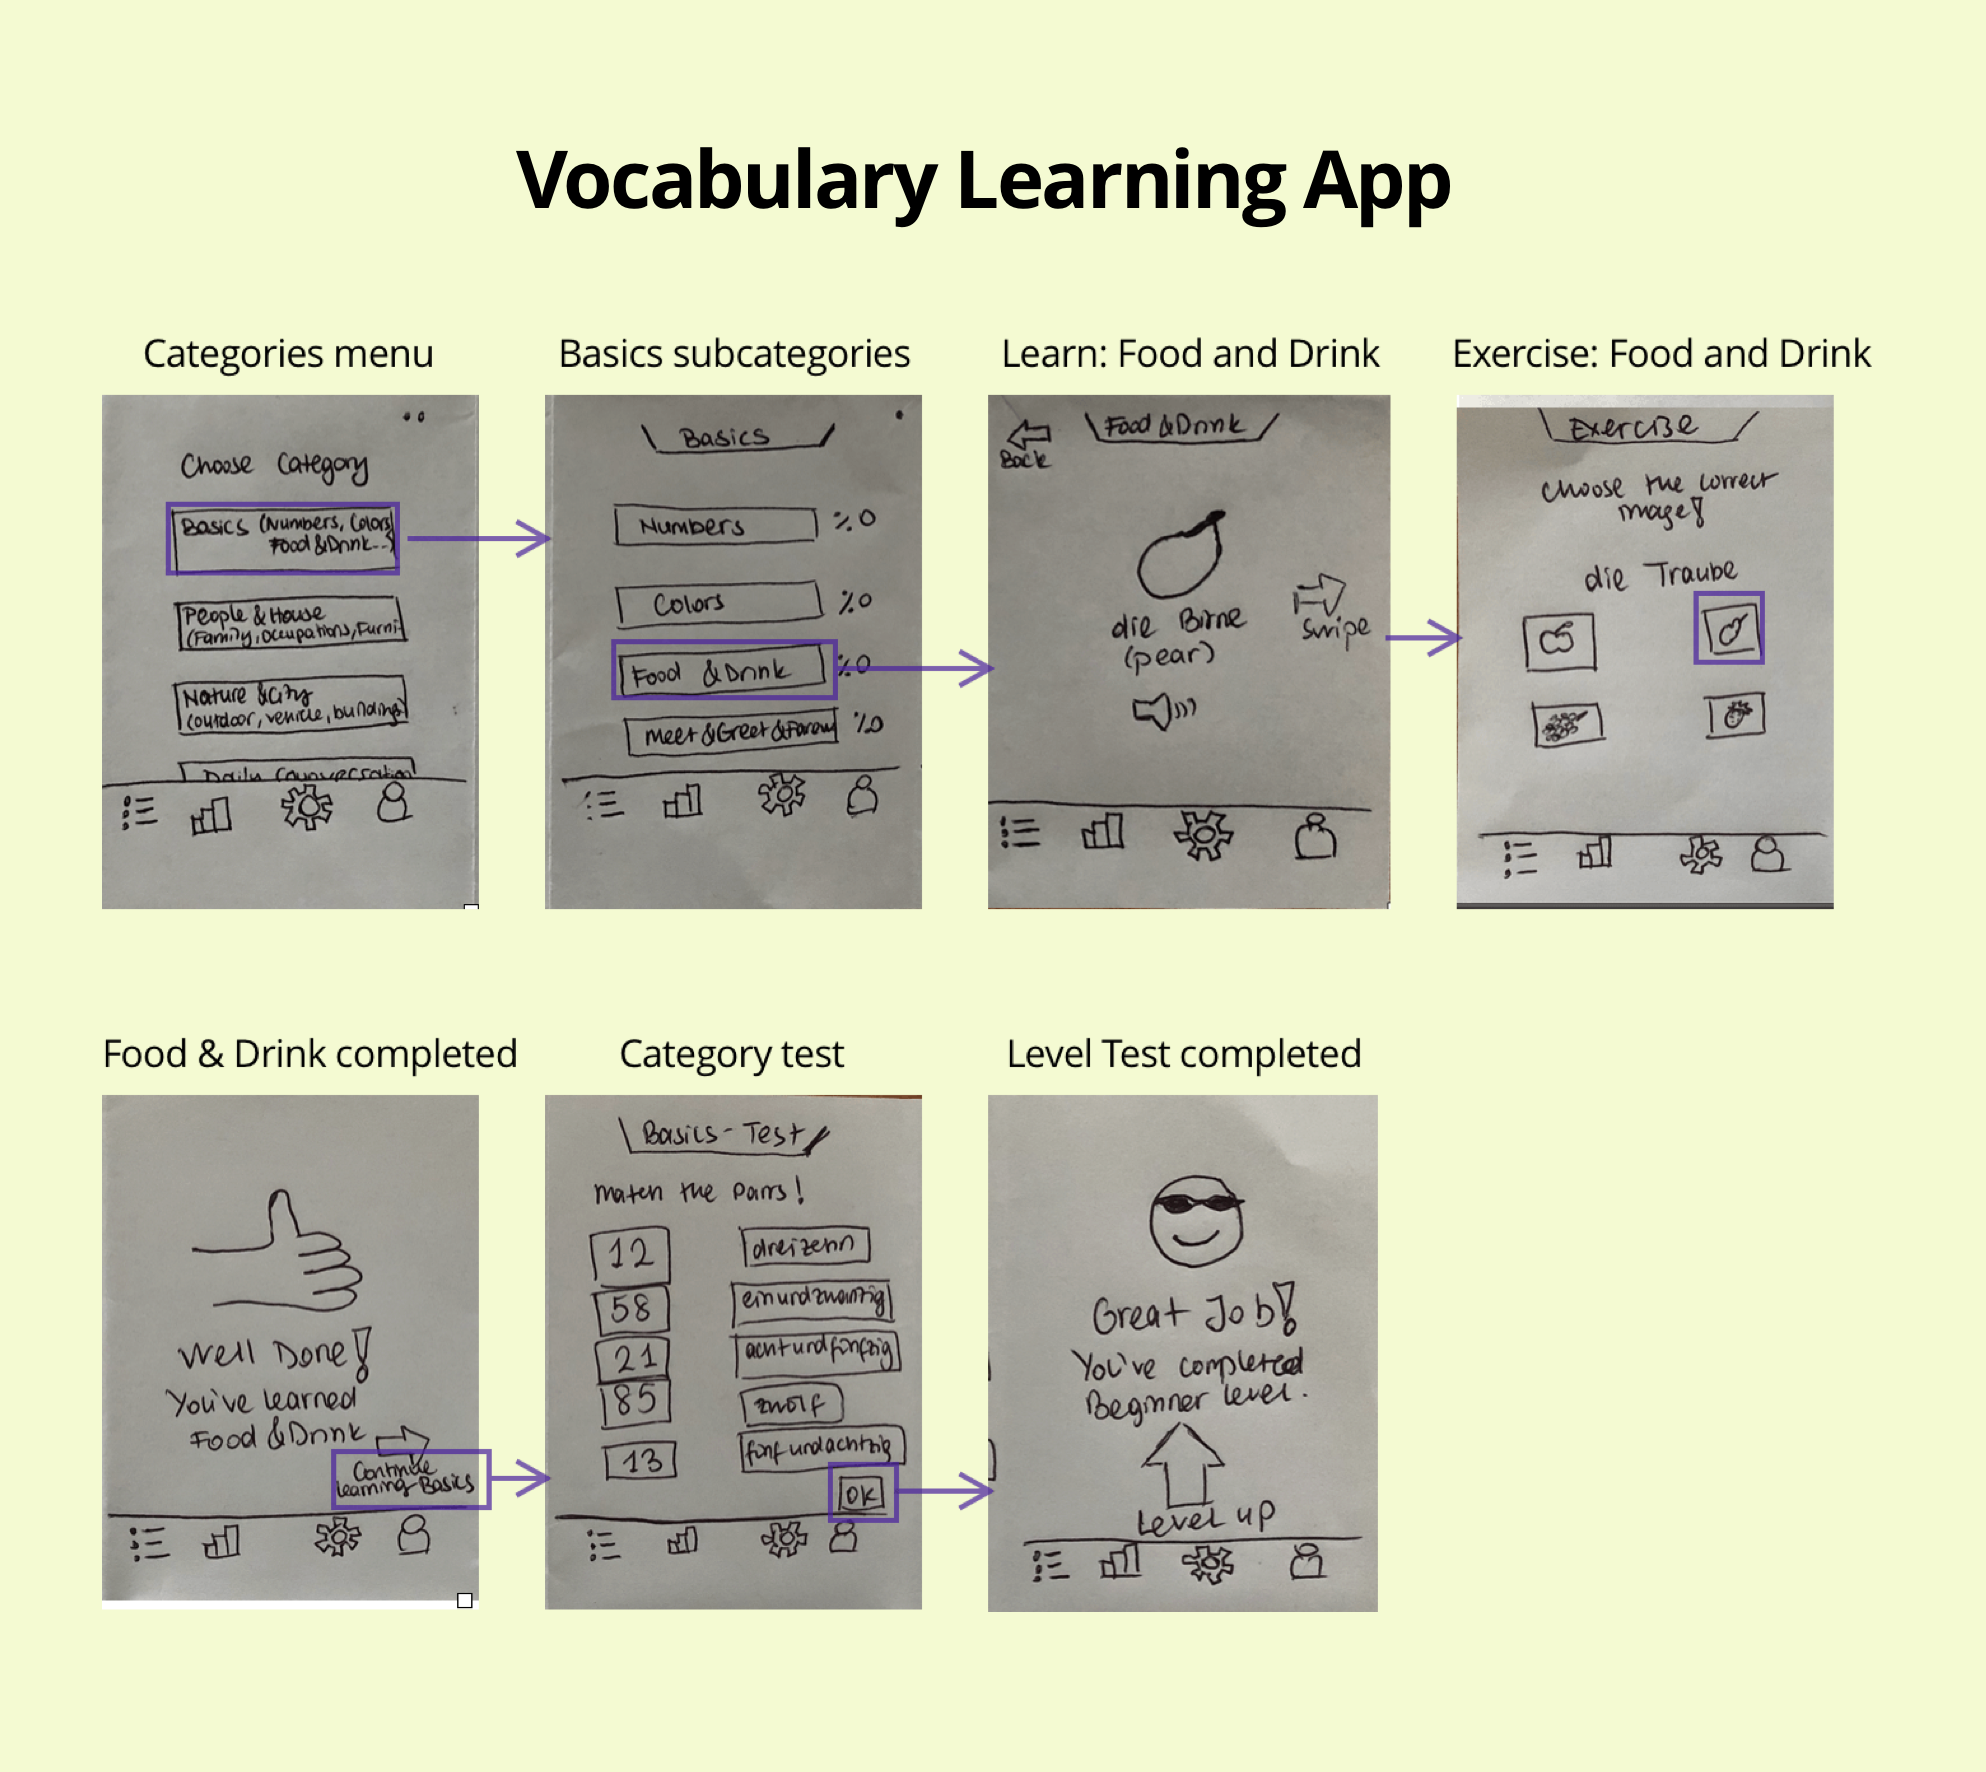 Vocabulary Learning App
Categories menu
Choose Category
Basics (Numbers, Colors
Food & Drink...)
People & House
(Family, occupations, Furni
Nature & City
(outdoor, vehicle, buildings)
Daily Counversation
Basics subcategories
Basics
Numbers %0
Colors %0
Food & Drink %0
Meet & Greet & Farew %0
Learn: Food and Drink
Food & Drink
Back
die Birne
(pear)
Swipe
Exercise: Food and Drink
Exercise
choose the correct
image!
die Traube
Food & Drink completed
Well Done!
You've learned
Food & Drink
Continue
learning Basics
Category test
Basics - Test
match the pairs!
12 dreizehn
58 einundzwanzig
21 achtundfünfzig
85 zwölf
13 fünfundachtzig
OK
Level Test completed
Great Job!
You've completed
Beginner level.
Level up